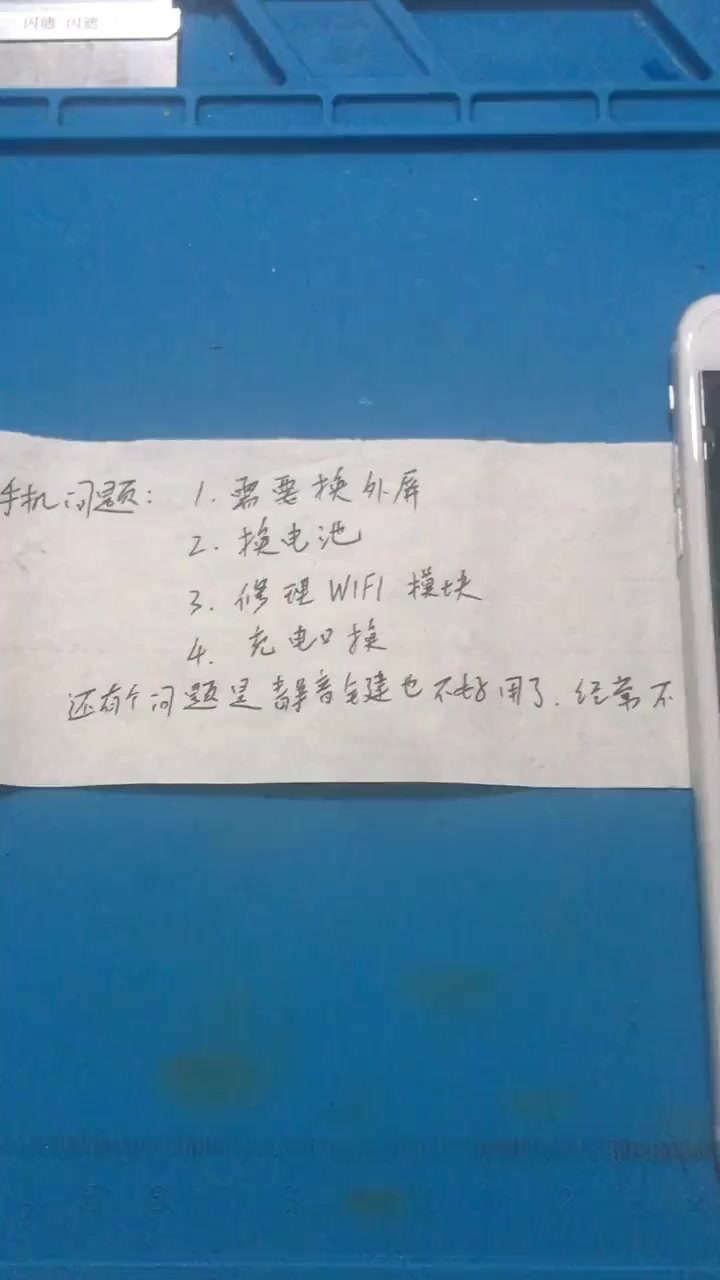 闪德 闪德
手机问题: 1. 需要换外屏
2. 换电池
3. 修理WIFI模块
4. 充电口换
还有个问题是静音键也不好用了.经常不